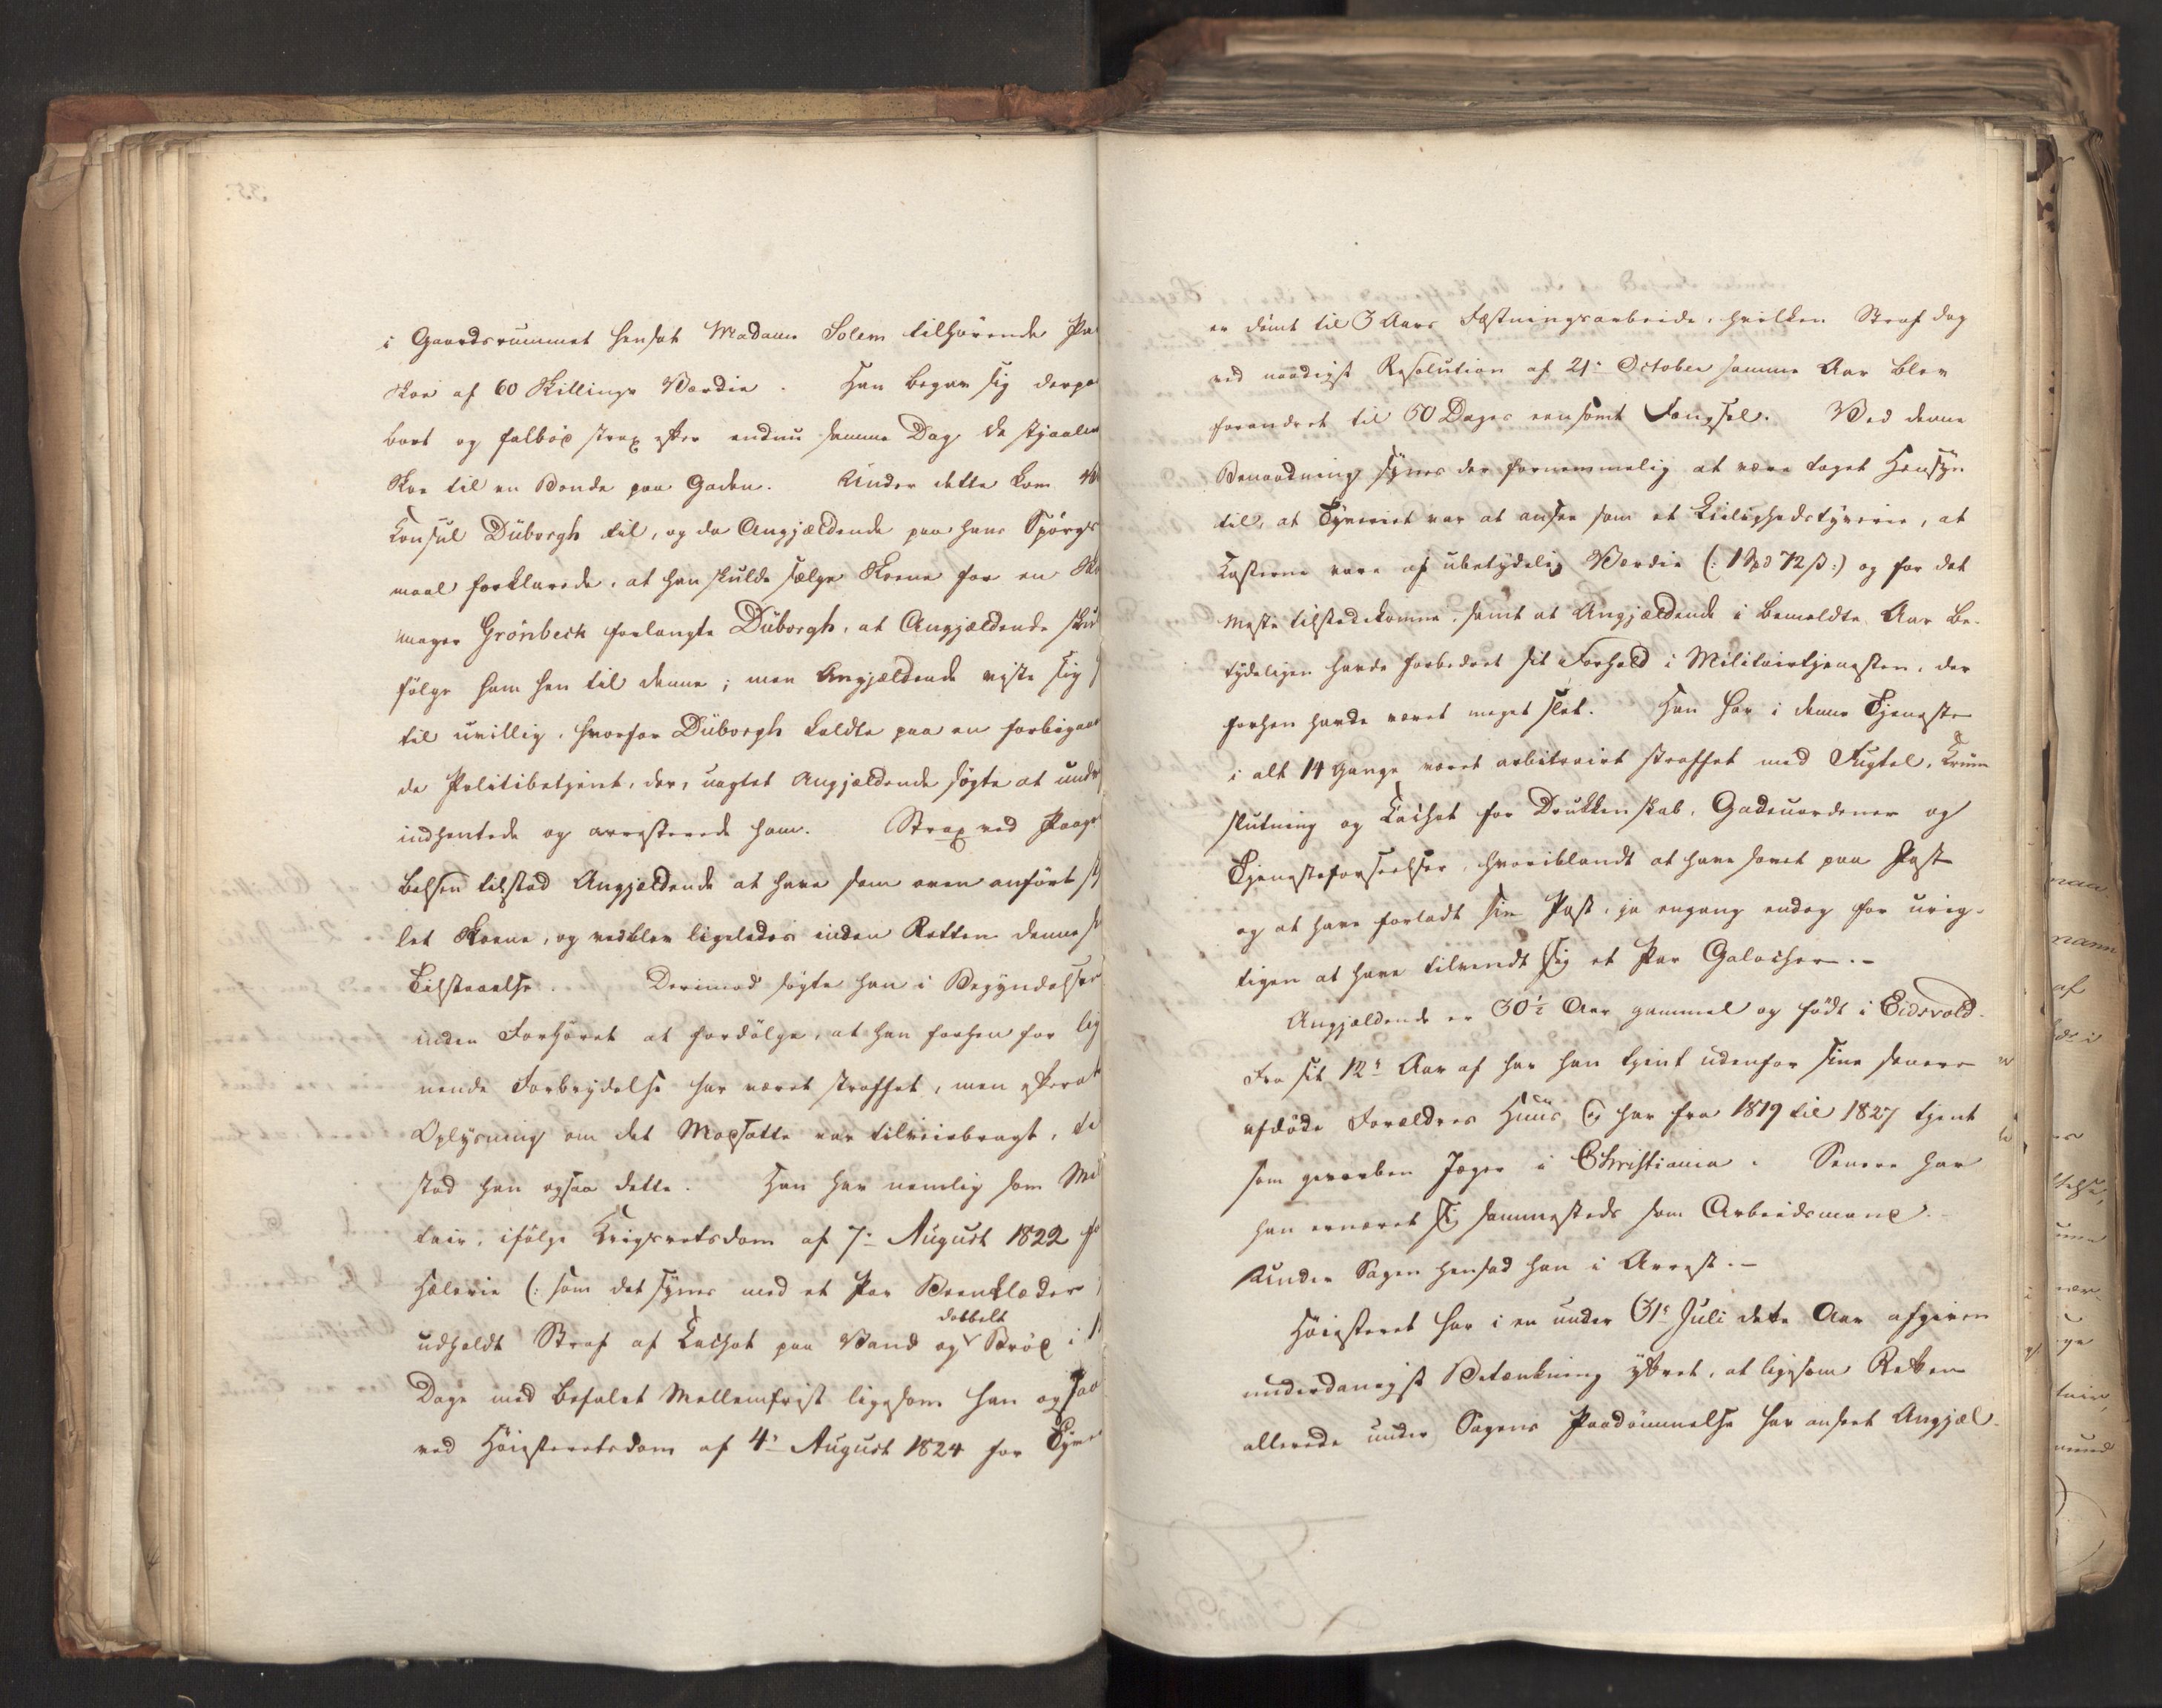 i Gaardsrummet hensat Madame Solem tilhørende Pa
Skoe af 60 Skillings Værdie. Han begav sig derpaa
bort og falbød strax efter endnu samme Dag de stjaalne
Skoe til en Bonde paa Gaden. Under dette kom
Konsul Düborgh til, og da Angjældende paa hans Spørgs
maal forklarede, at han skulde sælge Skoene for en Sko
mager Grönbeck forlangte Düborgh, at Angjældende skul
følge ham hen til denne; men Angjældende viste sig
til uvillig, hvorfor Düborgh kaldte paa en forbigaaen
de Politibetjent, der, uagtet Angjældende søgte at undv
indhentede og arresterede ham. Strax ved Paagri
belsen tilstod Angjældende at have som oven anført stj
let Skoene, og vedblev ligeledes inden Retten denne s
Tilstaaelse. Derimod søgte han i Begyndelsen
inden Forhøret at fordølge, at han forhen for lig
nende Forbrydelse har været straffet, men efterat
Oplysning om det Modsatte var tilveiebragt, til
stod han ogsaa dette. Han har nemlig som Mili
tair, ifølge Krigsretsdom af 7de August 1822 for
Hæleri (: som det synes med et Par Beenklæder
dobbelt
udholdt Straf af Cachot paa Vand og Brød i
Dage med befalet Mellemfrist ligesom han ogsaa
ved Høiesteretsdom af 4de August 1824 for Tyve
er dømt til 3 Aars Fæstningsarbeide, hvilken Straf dog
ved naadigst Resolution af 21de October samme Aar blev
forandret til 60 Dages eensomt Fængsel. Ved denne
Benaadning synes der fornemmelig at være taget Hensyn
til, at Tyveriet var at ansee som et Leilighedstyverie, at
Kosterne vare af ubetydelig Værdie (: 1 Spd 72 ß :) og for det
Meste tilstedekomne, samt at Angjældende i bemeldte Aar be-
tydeligen havde forbedret sit Forhold i Militairtjenesten, der
forhen havde været meget slet. Han har i denne Tjeneste
i alt 14 Gange været arbitrairt straffet med Fugtel, Krum
slutning og Cachot for Drukkenskab, Gadeuordener og
Tjenesteforseelser, hvoriblandt at have sovet paa Post
og at have forladt sin Post, ja engang endog for urig-
tigen at have tilvendt sig et Par Galocher.-
Angjældende er 30½ Aar gammel og født i Eidsvold.
Fra sit 12te Aar af har han tjent udenfor sine senere
afdøde Forældres Huus, og har fra 1819 til 1827 tjent
som geworben Jæger i Christiania. Senere har
han ernæret sig sammesteds som Arbeidsmand.-
Under Sagen hensad han i Arrest.-
Høiesteret har i en under 31te Juli dette Aar afgiven
underdanigst Betænkning yttret, at ligesom Retten
allerede under Sagens Paadømmelse har anseet Angjæl-